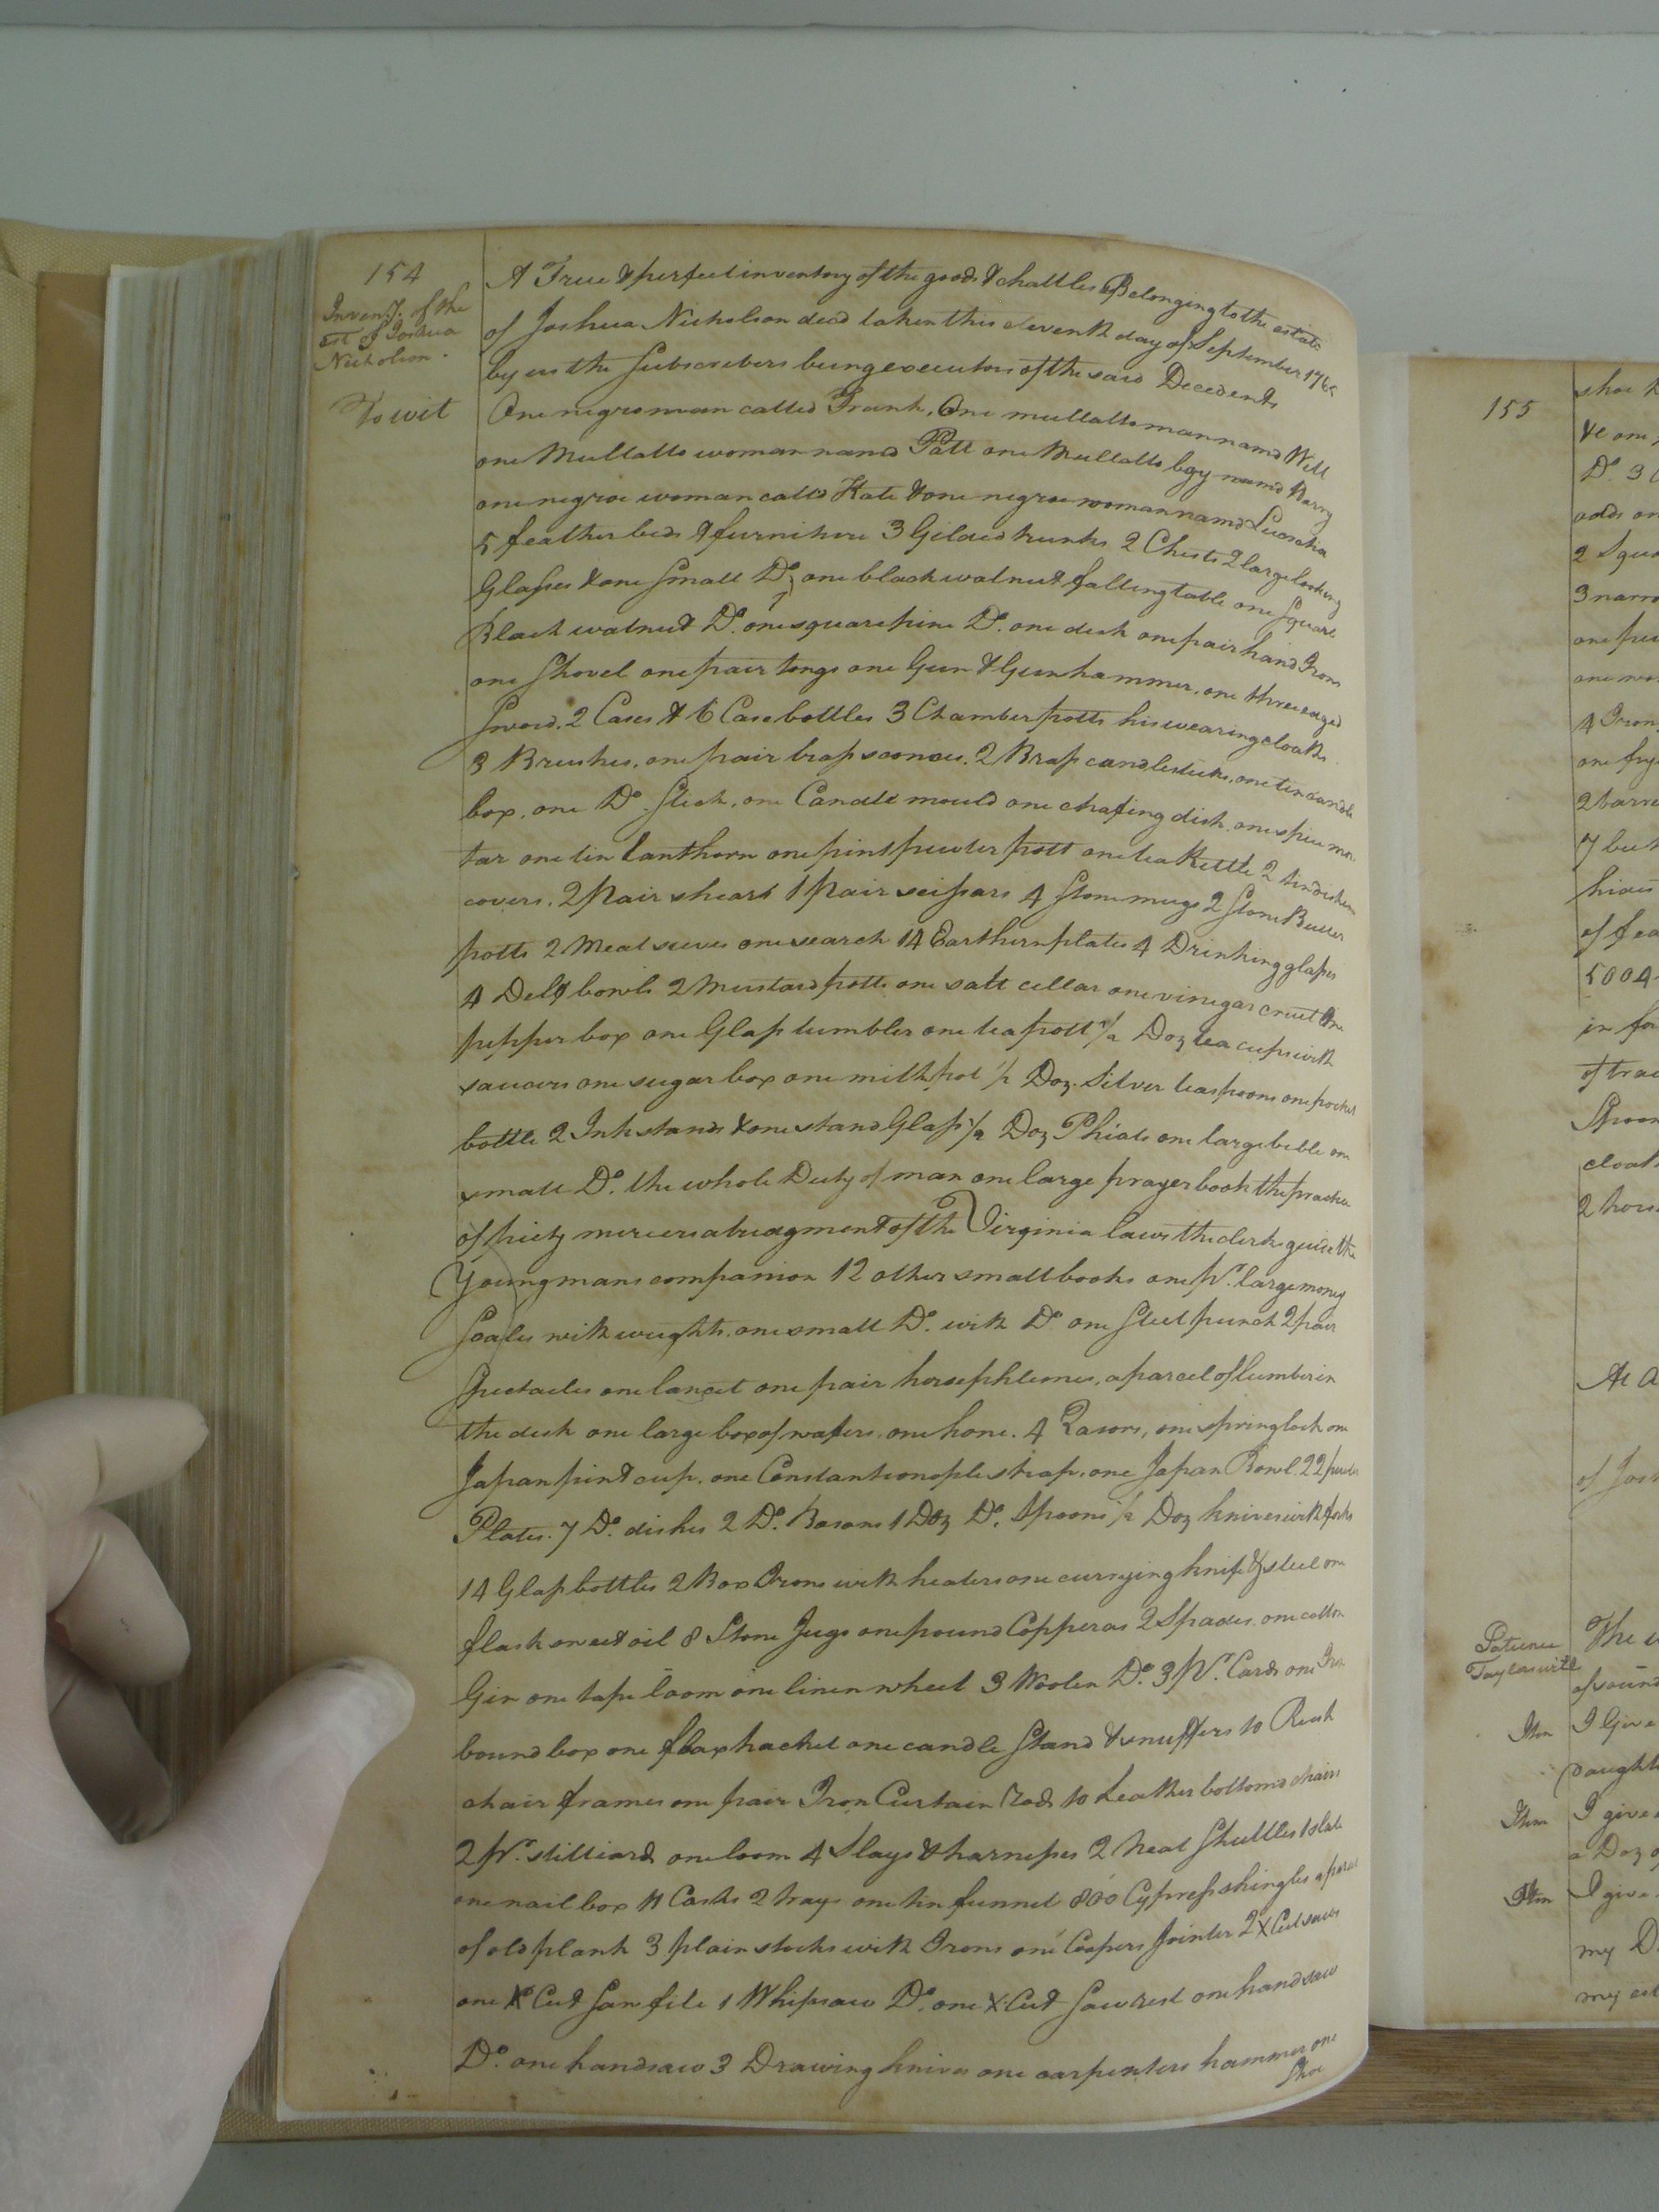 154
Inventy. of the
est of Joshua
Nicholson.
To wit
A True & perfect inventory of the goods & chattles Belonging to the estate
of Joshua Nicholson decd taken this eleventh day of September 176
by us the Subscribers being executors of the said Decedents
One negro man called Frank, One mullatto man namd Will
one Mullatto woman namd Patt one Mullatto boy namd Harry
one negroe woman calld Kate & one negroe woman namd Lucretia
5 feather beds & furniture 3 Gilded trunks 2 Chests 2 large looking
Glasses & one small Do, one black walnut falling table one Square
Black walnut Do. one square pine Do. one desk one pair hand Irons
one Shovel one pair tongs one Gun & Gun hammer, one three edged
Sword. 2 Cases & 6 Case bottles 3 Chamber potts his wearing cloaths
3 Brushes, one pair brass sconces. 2 Brass candlesticks, one tin candle
box, one Do Stick, one Candle mould one chafing dish one spice mor
tar one tin Lanthorn one pint pewter pott one tea Kettle 2 tin dishes
covers. 2 Pair shears 1 Pair scissars 4 Stone mugs 2 Stone Butter
potts 2 Meal sieves one search 14 Earthern plates 4 Drinking glasses
4 Delf bowls 2 Mustard potts one salt cellar one vinegar cruet One
pepper box one Glass tumbler one tea pott 1/2 Doz tea cups with
saucers one sugar box one milk pot 1/2 Doz. Silver teaspoons one pocket
bottle 2 Ink stands & one stand Glass 1/2 Doz Phials one large bible one
small Do. the whole Duty of man one large prayer book the practice
of piety mercers abridgment of the Virginia laws the clerks guide the
Young mans companion 12 other small books one pr. large money
Scales with weights, one small Do. with Do one Steel punch 2 pair
Spectacles one lancet one pair horse phleomes, a parcel of lumber in
the desk one large box of wafers, one hone. 4 Rasors, one spring lock one
Japan pint cup. one Constantionople strap, one Japan Bowl. 22 pewter
Plates. 7 Do. dishes 2 Do. Basons 1 Doz Do. Spoons 1/2 Doz knives with forks
14 Glass bottles 2 Box Irons with heaters one currying knife & steel one
flask sweet oil 8 Stone Jugs one pound Copperas 2 Spades. one cotton
Gin one tape loom one linen wheel 3 Woolen Do. 3 Pr. Cards one Iron
bound box one flax hachel one candle Stand & snuffers 10 Rush
chair frames one pair Iron Curtain Rods 10 Leather bottomd chairs
2 Pr. stilliards one loom 4 Slays & harnesses 2 Neat Shuttles 1 slate
one nail box 11 Casks 2 trays one tin funnel 800 Cypress shingles a parcel
of old plank 3 plain stocks with Irons one Coopers Jointer 2 X Cut saws
one X Cut Saw file 1 Whipsaw Do. one X Cut Saw rest one handsaw
Do. one handsaw 3 Drawing knives one carpenters hammer one
Shoe
155
shoe
Do. 3
odds on
2 Squa
3 narro
4 Iron
one fry
2 barre
hides
of fea
5004
in fo
of trac
Spoon
cloath
2 hors
At a
of Jos
Patience
Taylors will
The
of sound
Itm I Give
Daught
Itm I give
a Doz
Itm I give
my D
my est